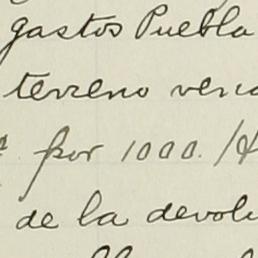 gastos Puebla
terreno ven
por 1000.
de la devolu